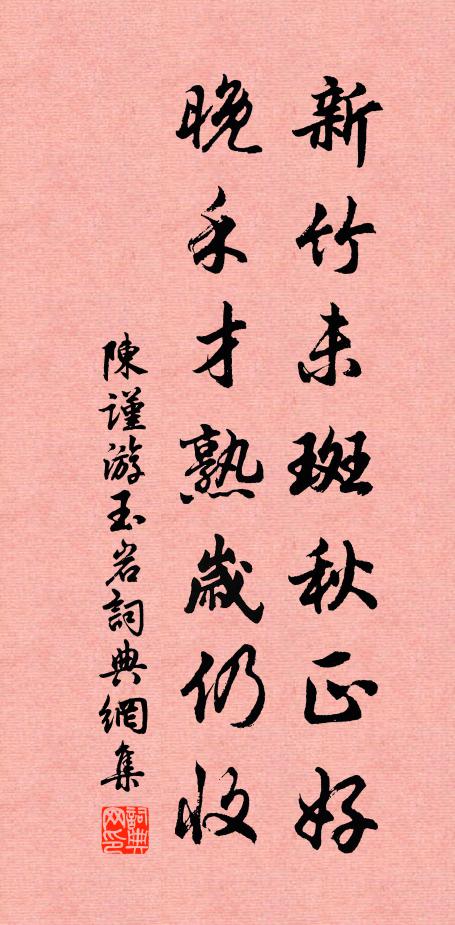 新竹未斑秋正好
晚禾才熟歲仍收
陳謹游玉岩詞典網集
詞典网印